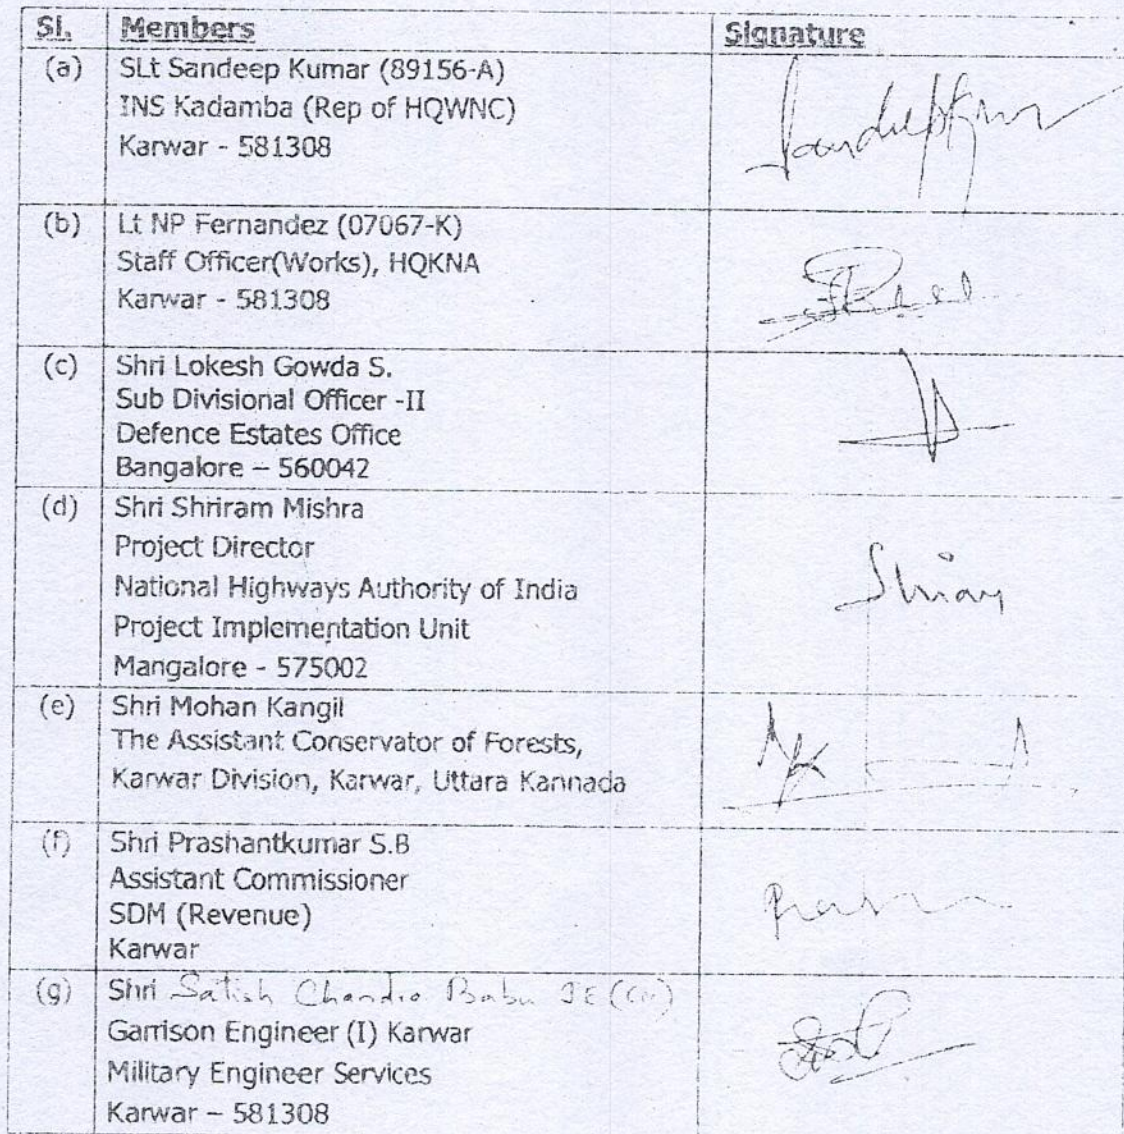 Sl. Members Signature
(a) SLt Sandeep Kumar (89156-A)
INS Kadamba (Rep of HQWNC)
Karwar - 581308
Sandeep Kumar
(b) Lt NP Fernandez (07067-K)
Staff Officer(Works), HQKNA
Karwar - 581308
(c) Shri Lokesh Gowda S.
Sub Divisional Officer -II
Defence Estates Office
Bangalore – 560042
(d) Shri Shriram Mishra
Project Director
National Highways Authority of India
Project Implementation Unit
Mangalore - 575002
(e) Shri Mohan Kangil
The Assistant Conservator of Forests,
Karwar Division, Karwar, Uttara Kannada
(f) Shri Prashantkumar S.B
Assistant Commissioner
SDM (Revenue)
Karwar
(g) Shri Satish Chandra Babu JE (Civ)
Garrison Engineer (I) Karwar
Military Engineer Services
Karwar – 581308